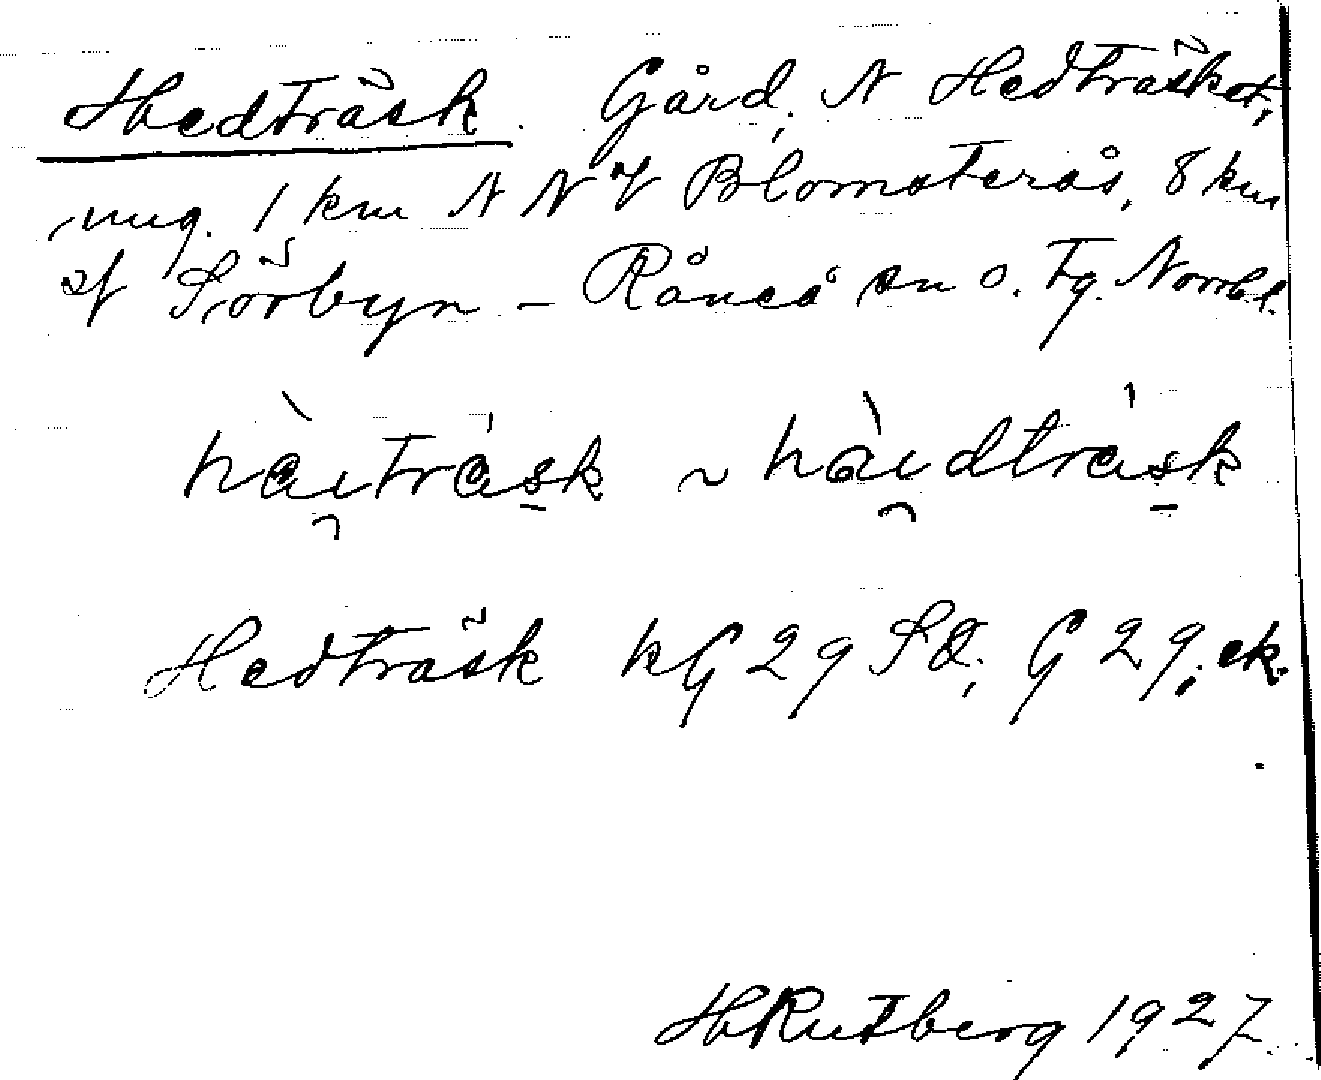 Hedträsk. Gård, N Hedträsket,
ung. 1 km NNV Blomsterås, 8 km
V Sörbyn – Råneå sn o. tg. Norrb l.
hàı̯tràsk ~ hàı̯dtràsk
Hedträsk hG 29 SO; G 29; ek.
HRutberg 1927